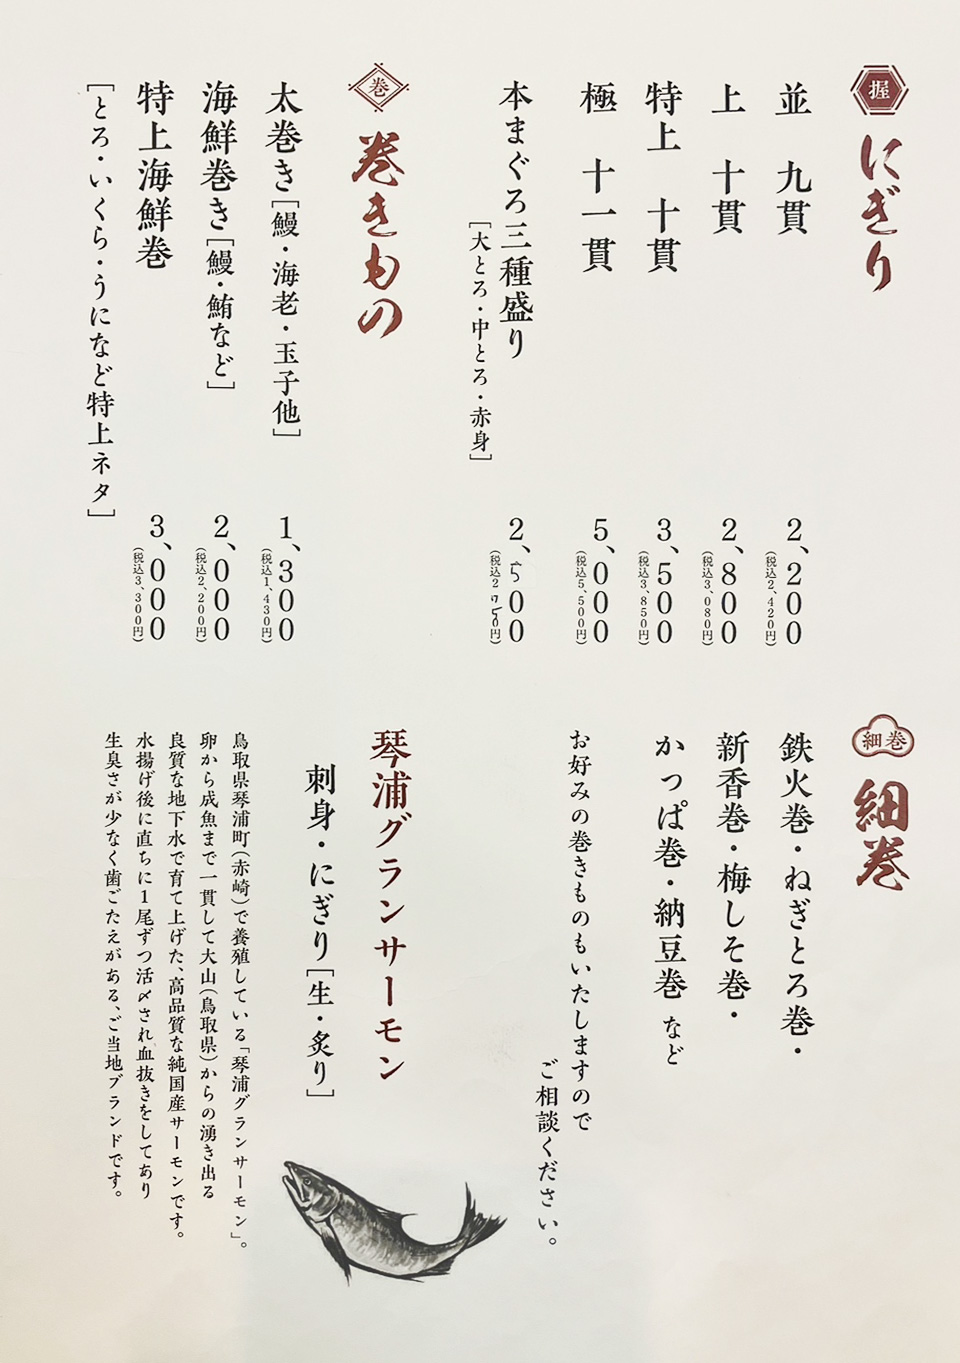 握
にぎり
並 九貫
2,200
(税込2,420円)
上 十貫
2,800
(税込3,080円)
特上 十貫
3,500
(税込3,850円)
極 十一貫
5,000
(税込5,500円)
本まぐろ三種盛り
[大とろ・中とろ・赤身]
2,500
(税込2,750円)
巻
巻きもの
太巻き[鰻・海老・玉子他]
1,300
(税込1,430円)
海鮮巻き[鰻・鮪など]
2,000
(税込2,200円)
特上海鮮巻
[とろ・いくら・うになど特上ネタ]
3,000
(税込3,300円)
細巻
細巻
鉄火巻・ねぎとろ巻・
新香巻・梅しそ巻・
かっぱ巻・納豆巻 など
お好みの巻きものもいたしますので
ご相談ください。
琴浦グランサーモン
刺身・にぎり[生・炙り]
鳥取県琴浦町(赤崎)で養殖している「琴浦グランサーモン」。
卵から成魚まで一貫して大山(鳥取県)からの湧き出る
良質な地下水で育て上げた、高品質な純国産サーモンです。
水揚げ後に直ちに1尾ずつ活〆され血抜きをしてあり
生臭さが少なく歯ごたえがある、ご当地ブランドです。